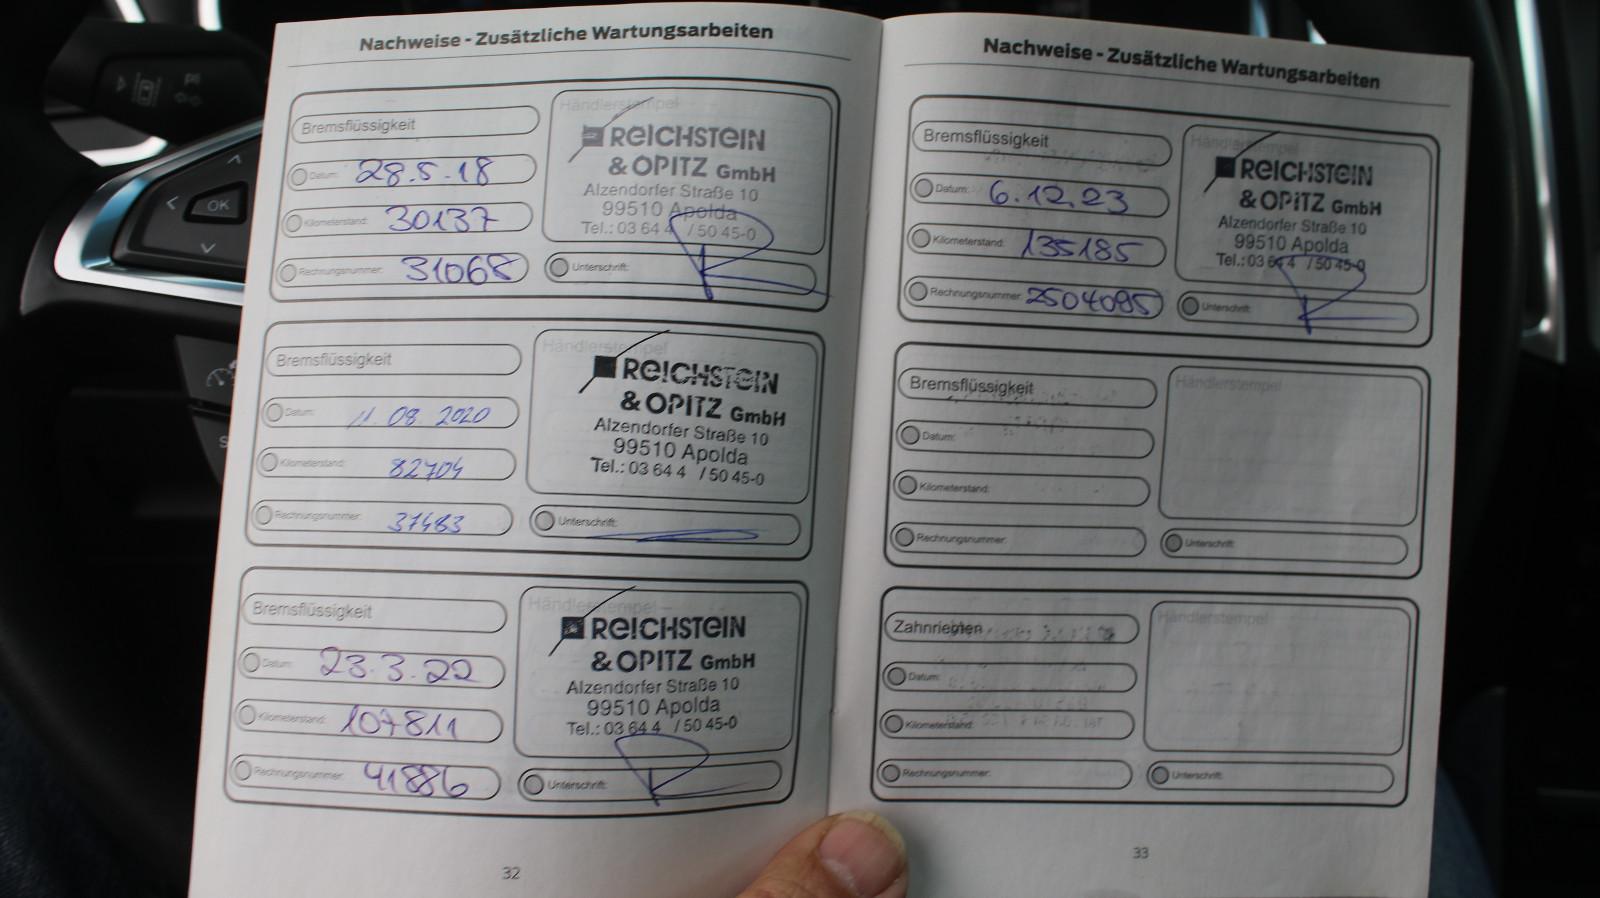 Nachweise - Zusätzliche Wartungsarbeiten
Bremsflüssigkeit
Datum: 28.5.18
Kilometerstand: 30137
Rechnungsnummer: 31068
Händlerstempel
REICHSTEIN
& OPITZ GmbH
Alzendorfer Straße 10
99510 Apolda
Tel.: 03 64 4 / 50 45-0
Unterschrift:
Bremsflüssigkeit
Datum: 11.08.2020
Kilometerstand: 82704
Rechnungsnummer: 37483
Händlerstempel
REICHSTEIN
& OPITZ GmbH
Alzendorfer Straße 10
99510 Apolda
Tel.: 03 64 4 / 50 45-0
Unterschrift:
Bremsflüssigkeit
Datum: 23.3.22
Kilometerstand: 107811
Rechnungsnummer: 41886
Händlerstempel
REICHSTEIN
& OPITZ GmbH
Alzendorfer Straße 10
99510 Apolda
Tel.: 03 64 4 / 50 45-0
Unterschrift:
32
Nachweise - Zusätzliche Wartungsarbeiten
Bremsflüssigkeit
Datum: 6.12.23
Kilometerstand: 135185
Rechnungsnummer: 2504095
Händlerstempel
REICHSTEIN
& OPITZ GmbH
Alzendorfer Straße 10
99510 Apolda
Tel.: 03 64 4 / 50 45-0
Unterschrift:
Bremsflüssigkeit
Datum:
Kilometerstand:
Rechnungsnummer:
Händlerstempel
Unterschrift:
Zahnriemen
Datum:
Kilometerstand:
Rechnungsnummer:
Händlerstempel
Unterschrift:
33
OK